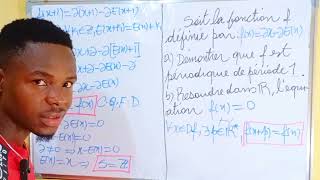 f(x+1)=2(x+1)-2E(x+1)
=2x+2-2[E(x)+1]
=2x+2-2E(x)-2
2x-2E(x)
f(x) C.Q.F.D
2E(x)=0
2≠0 ⇒ x-E(x)=0
E(x)=x ⇒ S=ℤ
Soit la fonction f
définie par f(x)=2x-2E(x)
a) Demontrer que f est
périodique de période 1.
b) Resoudre dans ℝ, l'equ-
ation f(x)=0
∀x∈Df, ∃p∈ℝ*₊ f(x+p)=f(x)